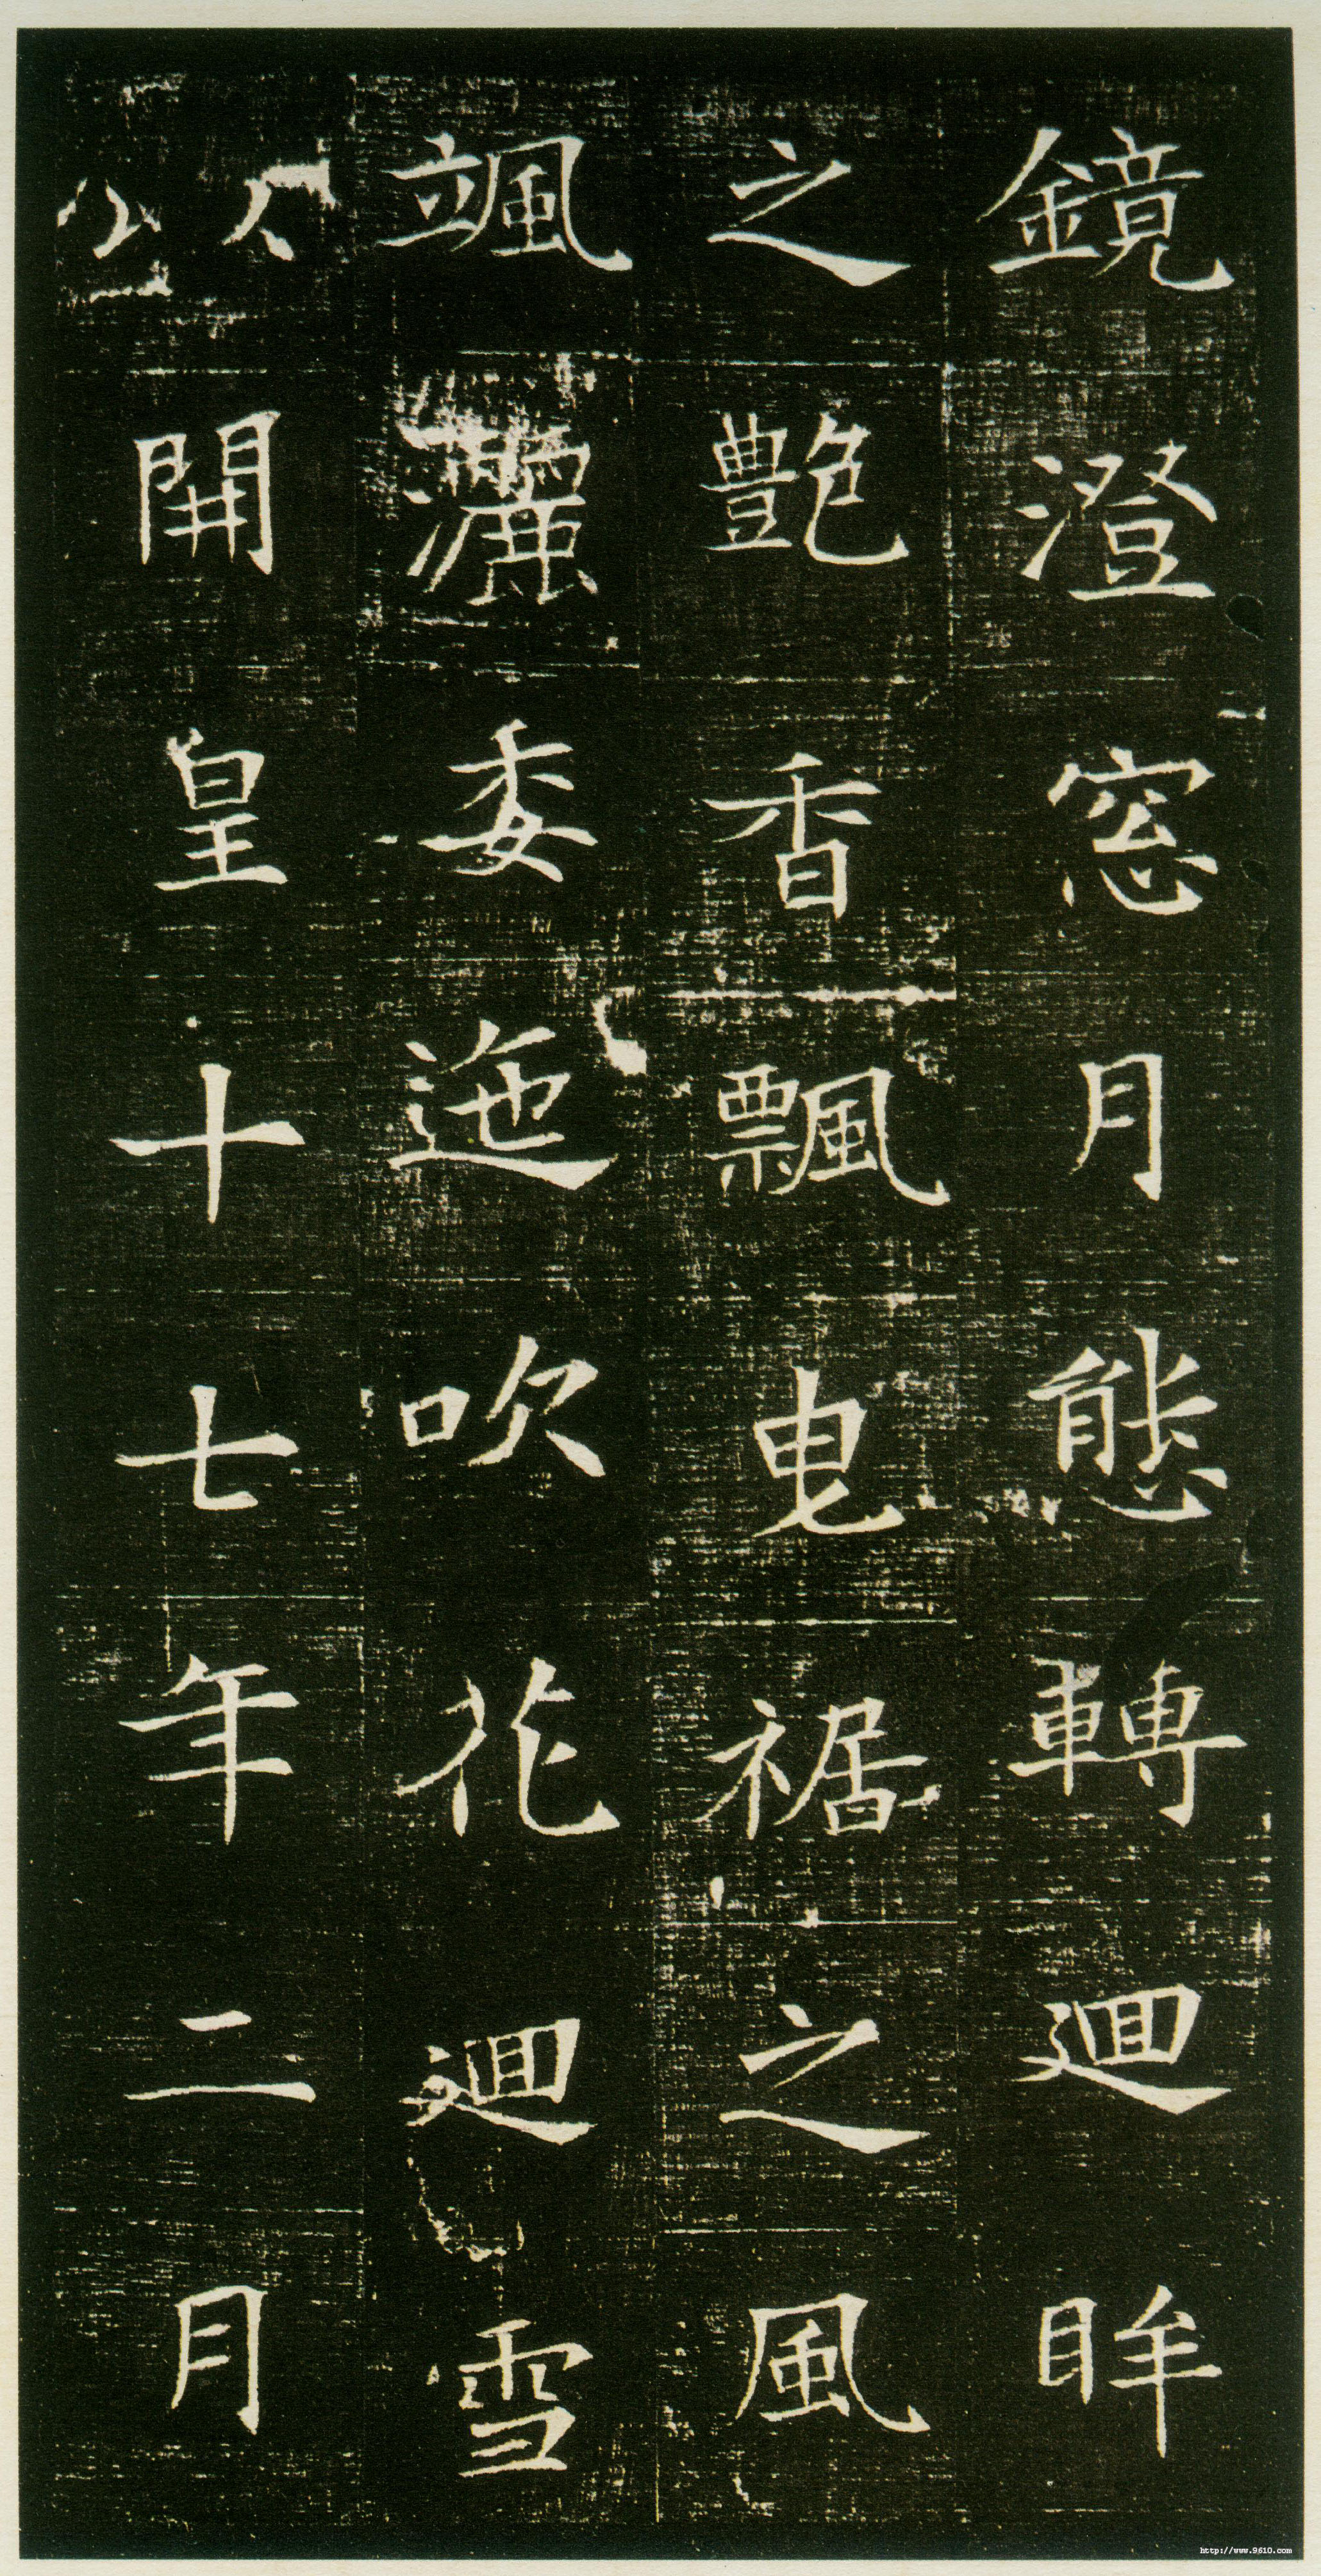 鏡澄窓月態轉迴眸
之艷香飄曳裾之風
颯灑委迤吹花迴雪
以開皇十七年二月
http://www.9610.com